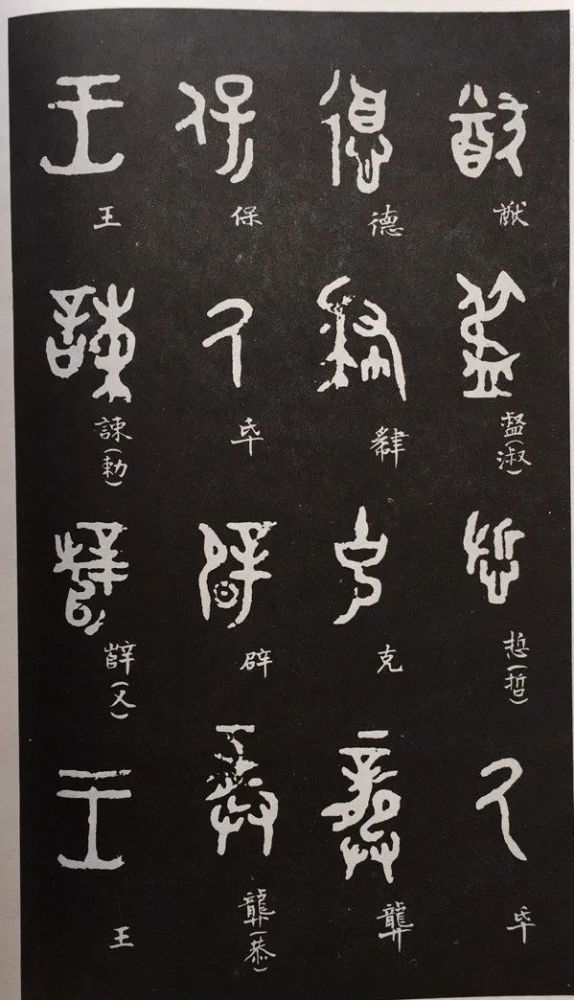 猷
盄(淑)
悊(哲)
氒
德
肆
克
龏
保
氒
辟
龏(恭)
王
諫(勅)
辥(乂)
王